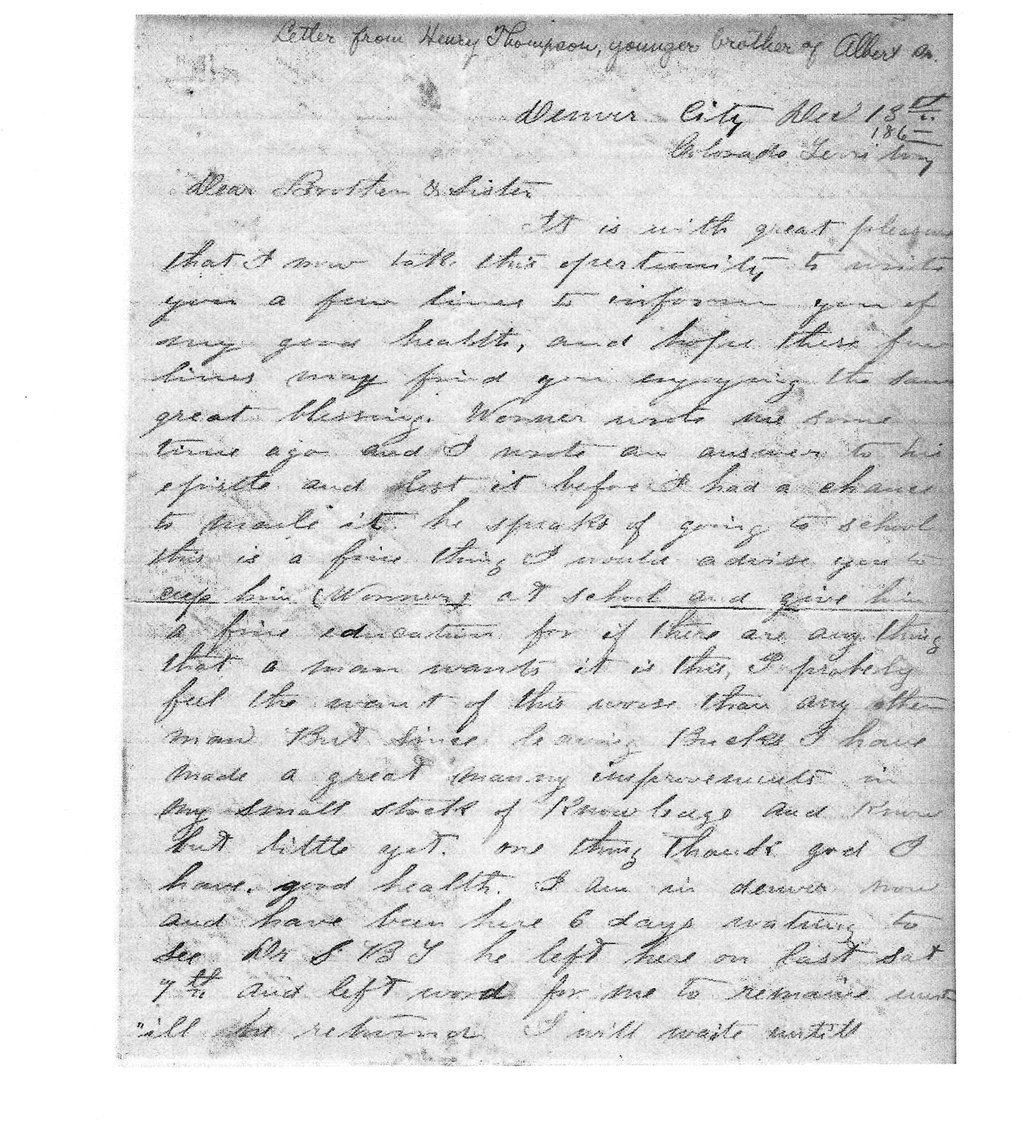 Letter from Henry Thompson, younger brother of Albert Sr.
Denver City Dec 13th
186
Colorado Territory
Dear Brother & Sister
It is with great pleasure
that I now take this opertunity to write
you a few lines to inform you of
my good health, and hope these few
lines may find you enjoying the same
great blessing. Wormer wrote me some
time ago and I wrote an answer to his
epistle and lost it before I had a chance
to maile it. he speaks of going to school
this is a fine thing I would advise you to
him (Wormer) at school and give him
a fine education for if there are any thing
that a man wants it is this, I probely
feel the want of this worse than any other
man But since leaving Bucks I have
made a great manny improvements in
my small stock of Knowledge and Know
but little yet. one thing Thank god I
have. good health. I am in denver now
and have been here 6 days waiting to
see Dr S B T he left here on last sat
7th and left word for me to remaine unt
"ill he returnd I will waite untill